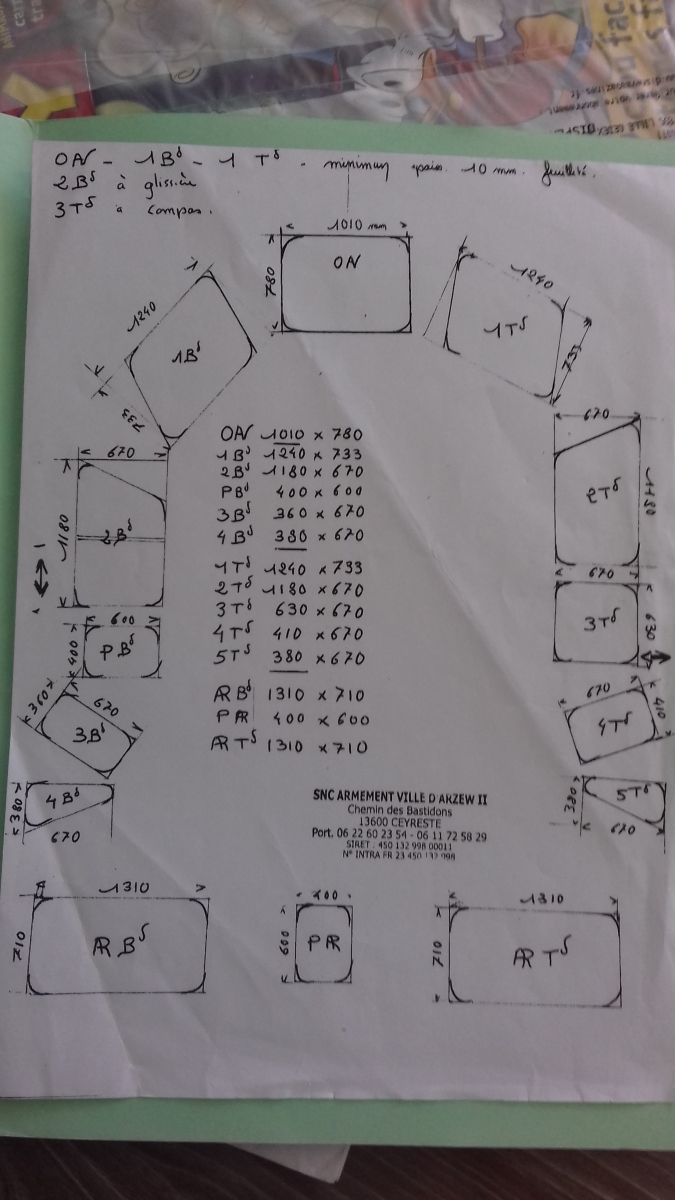 OAV - 1Bd - 1 Td - minimum epais. 10 mm. feuilleté.
2Bd à glissière
3Td a compas.
1010 mm
780
OAV
1240
733
1Bd
1240
733
1Td
670
1180
2Bd
670
1180
2Td
OAV 1010 x 780
1Bd 1240 x 733
2Bd 1180 x 670
PBd 400 x 600
3Bd 360 x 670
4Bd 380 x 670
1Td 1240 x 733
2Td 1180 x 670
3Td 630 x 670
4Td 410 x 670
5Td 380 x 670
AR Bd 1310 x 710
P AR 400 x 600
AR Td 1310 x 710
600
400
PBd
670
630
3Td
360
670
3Bd
670
410
4Td
380
4Bd
670
380
5Td
670
SNC ARMEMENT VILLE D ARZEW II
Chemin des Bastidons
13600 CEYRESTE
Port. 06 22 60 23 54 - 06 11 72 58 29
SIRET : 450 132 998 00011
N° INTRA FR 23 450 132 998
1310
710
AR Bd
400
600
P AR
1310
710
AR Td